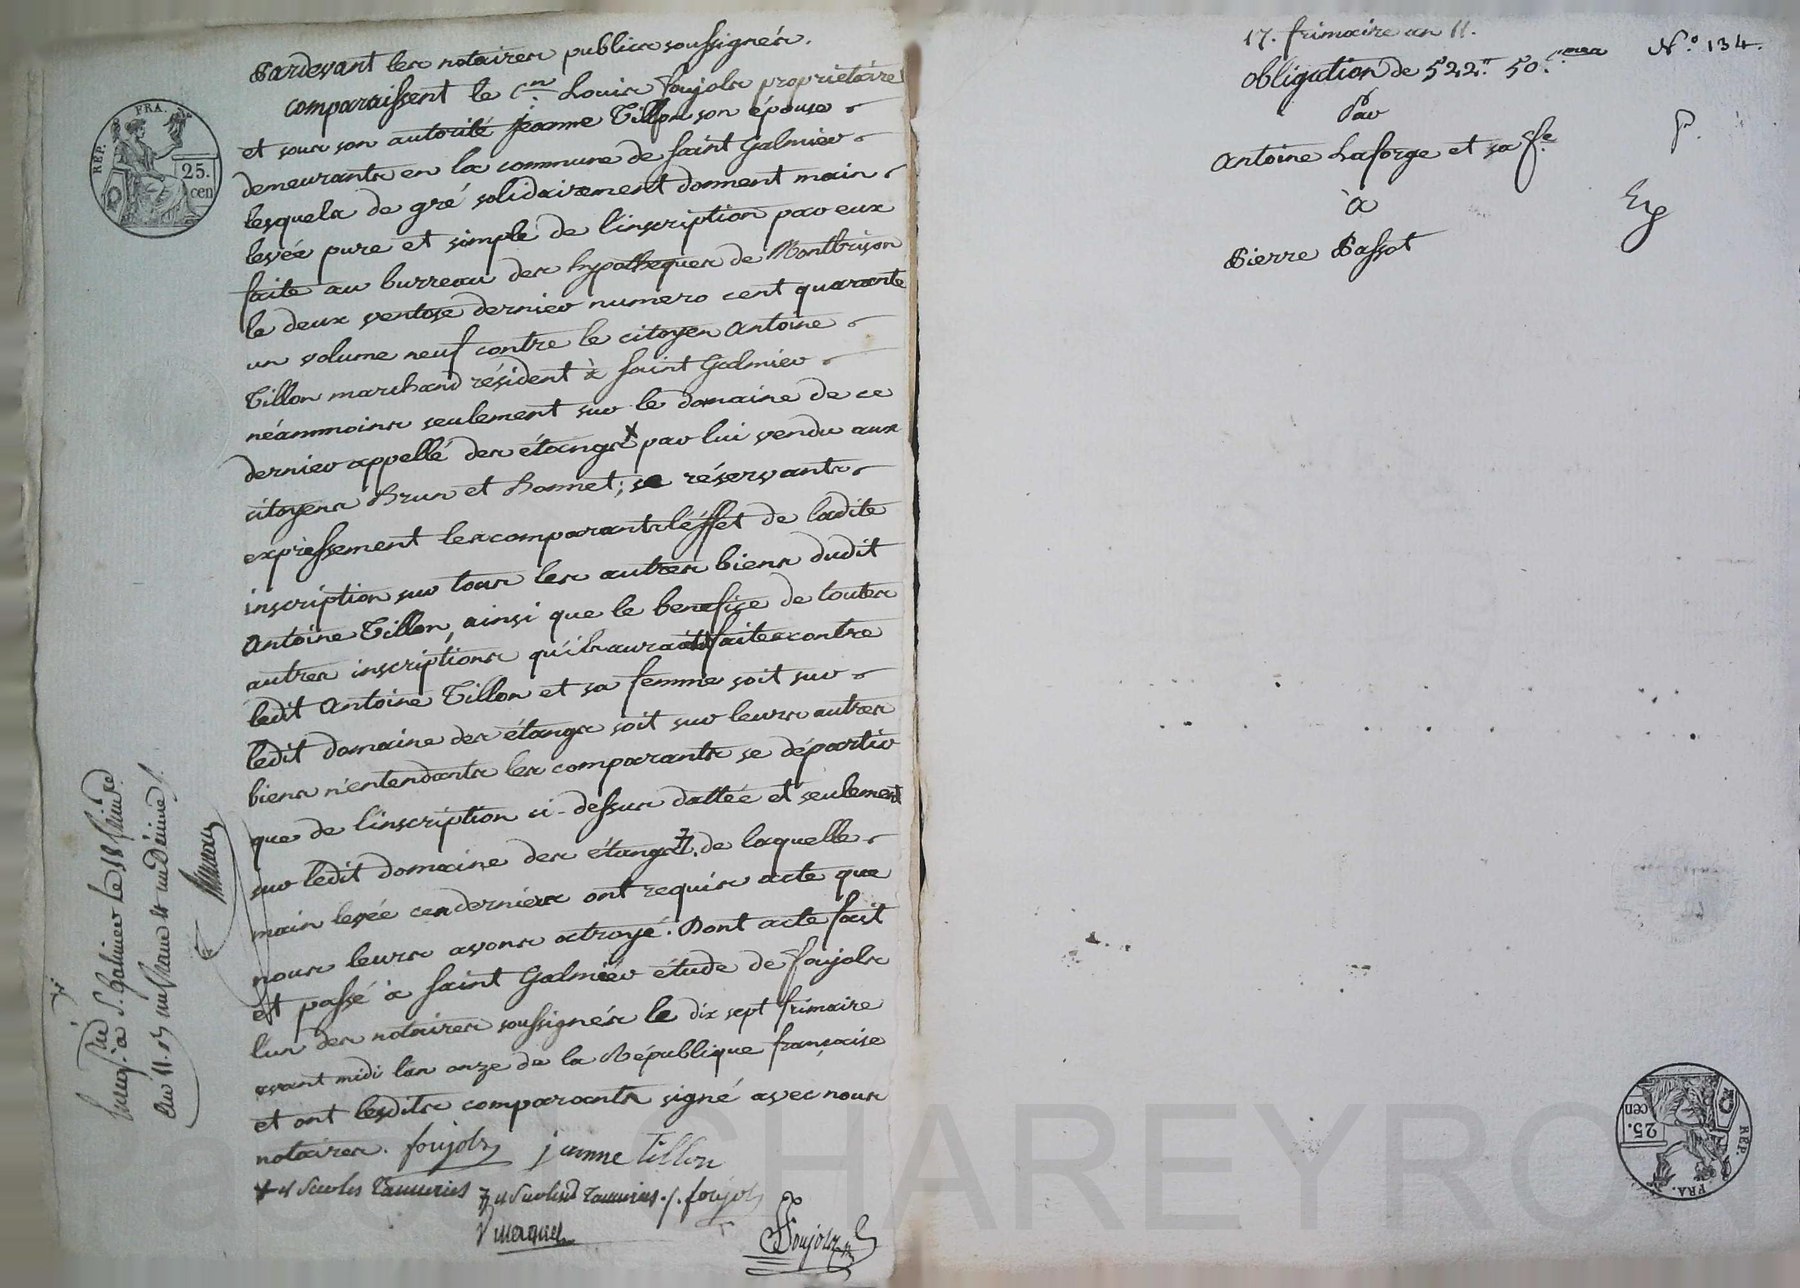 Pardevant les notaires publics soussignés.
comparaissent le C.en Louis foujols propriétaire
et sous son autorité jeanne Tillon son épouse
demeurants en la commune de saint Galmier
lesquels de gré solidairement donnent main
levée pure et simple de l'inscription par eux
faite au burreau des hypotheques de Montbrison
le deux ventose dernier numero cent quarante
un volume neuf contre le citoyen Antoine
Tillon marchand résident à saint Galmier
néammoins seulement sur le domaine de ce
dernier appellé des étangs x par lui vendu aux
citoyens Brun et Bonnet; se réservants
expressement les comparants l'éffet de ladite
inscription sur tous les autres biens dudit
Antoine Tillon, ainsi que le benefice de toutes
autres inscriptions qu'ils auraient faites contre
ledit Antoine Tillon et sa femme soit sur
ledit domaine des étangs soit sur leurs autres
biens n'entendants les comparants se départir
que de l'inscription ci-dessus dattée et seulement
sur ledit domaine des étangs de laquelle
main levée ces derniers ont requis acte que
nous leurs avons octroyé. Dont acte fait
et passé à saint Galmier étude de foujols
l'un des notaires soussignés le dix sept frimaire
avant midi l'an onze de la République française
et ont lesdits comparants signé avec nous
notaires. foujols jeanne tillon
foujols
foujols
Enreg.tré à S.t Galmier le 18 frimaire
an 11. un franc
REP. FRA.
25.
cen
17. frimaire an 11.
N.o 134.
obligation de 522.# 50.cmes
Par
P.
Antoine Laforge et sa fe
à
Eg
Pierre Passot
REP. FRA.
25.
cen
CHAREYRON